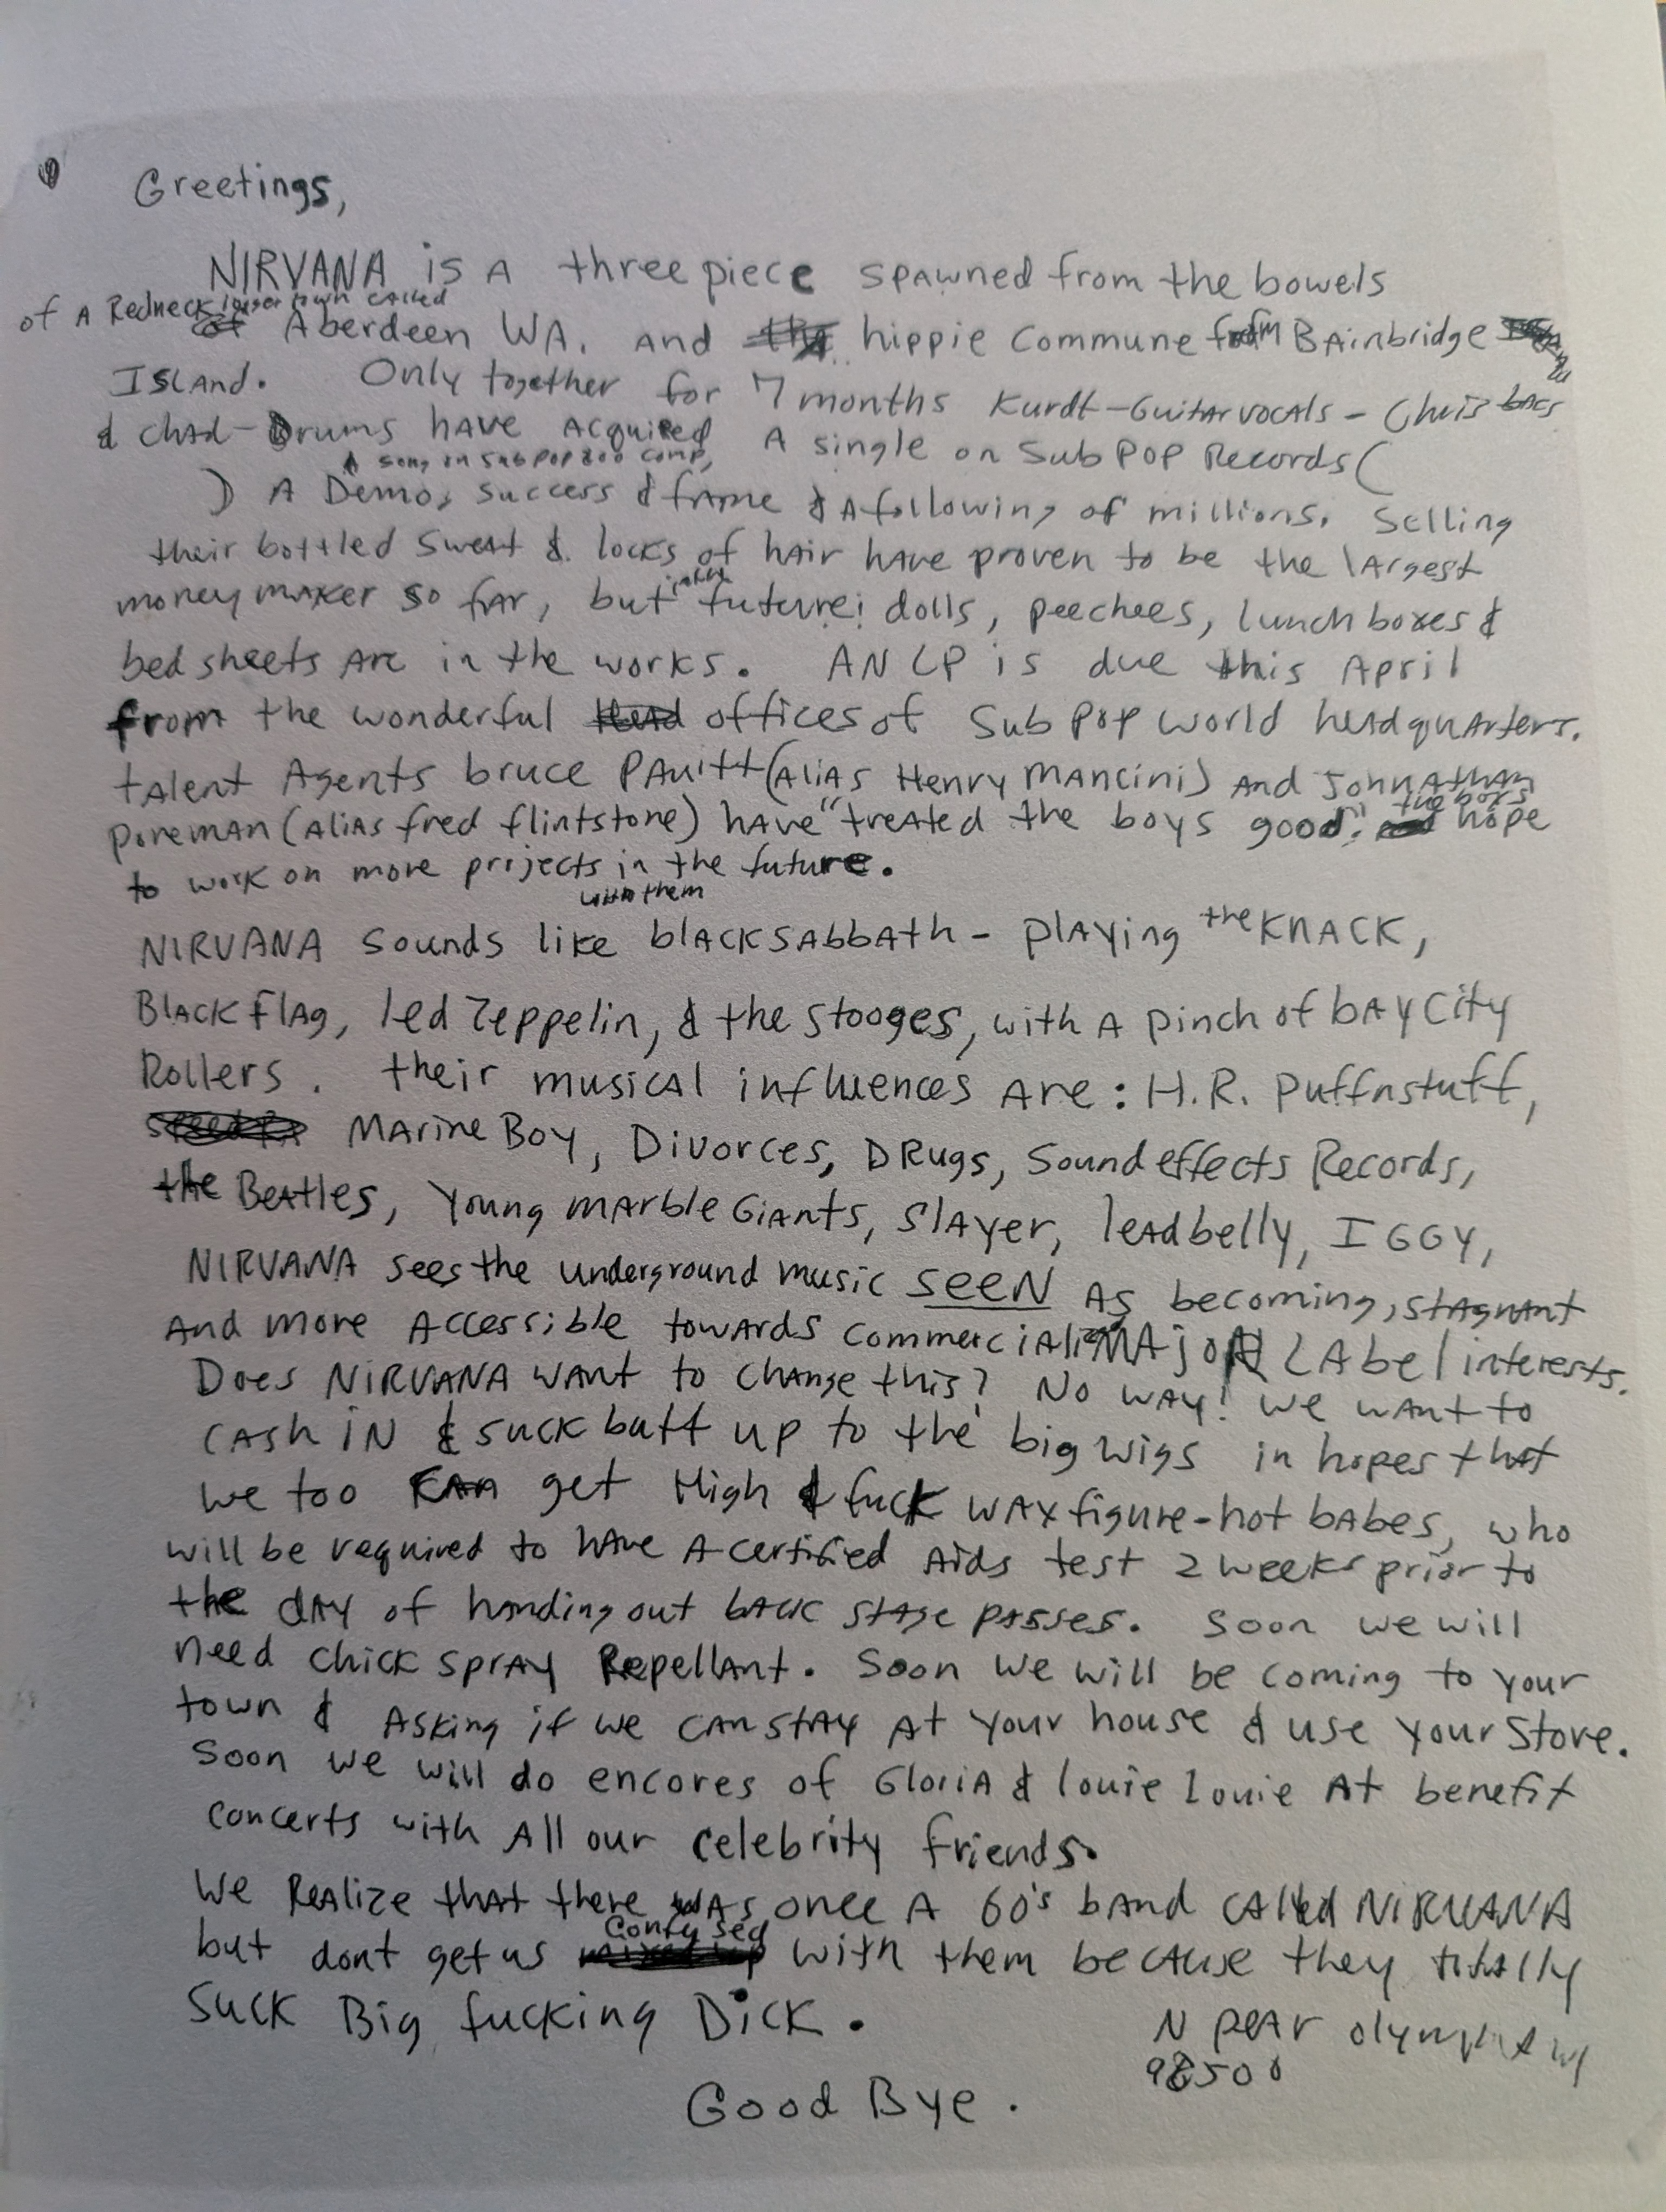 Greetings,
NIRVANA is A three piece spawned from the bowels
of A Redneck loser town called
Aberdeen WA. and hippie commune from BAinbridge
Island. Only together for 7 months Kurdt-Guitar vocals - Chris bass
& chad-Drums have Acquired A single on Sub POP Records(
A song on Sub Pop 200 comp,
) A Demo, success & fame & A following of millions. Selling
their bottled sweat & locks of hair have proven to be the largest
money maker so far, but in the futurre: dolls, peechees, lunch boxes &
bed sheets Are in the works. AN LP is due this April
from the wonderful offices of Sub Pop world headquarters.
talent Agents bruce PAvitt (Alias Henry Mancini) And Johnathan
Poneman (Alias fred flintstone) have "treated the boys good." the boys hope
to work on more projects in the future.
with them
NIRVANA sounds like blackSabbath - playing the KNACK,
Black flag, led Zeppelin, & the Stooges, with A pinch of bAy City
Rollers. their musical influences Are: H.R. Puffnstuff,
Marine Boy, Divorces, DRugs, Sound effects Records,
the Beatles, Young marble Giants, Slayer, leadbelly, IGGY,
NIRVANA sees the underground music SEEN As becoming, stagnant
And more Accessible towards commercial MAjOR LAbel interests.
Does NIRVANA want to change this? No way! we want to
cash iN & suck butt up to the big wigs in hopes that
we too can get High & fuck wax figure-hot babes, who
will be required to have A certified Aids test 2 weeks prior to
the day of handing out back stage passes. Soon we will
need chick spray Repellant. Soon we will be coming to your
town & Asking if we can stay At your house & use your Stove.
Soon we will do encores of Gloria & louie Louie At benefit
concerts with All our celebrity friends.
We Realize that there was once A 60's band called NIRVANA
but dont get us Confused with them because they totally
Suck Big fucking DiCK.
N pear olympia WA
98506
Good Bye.